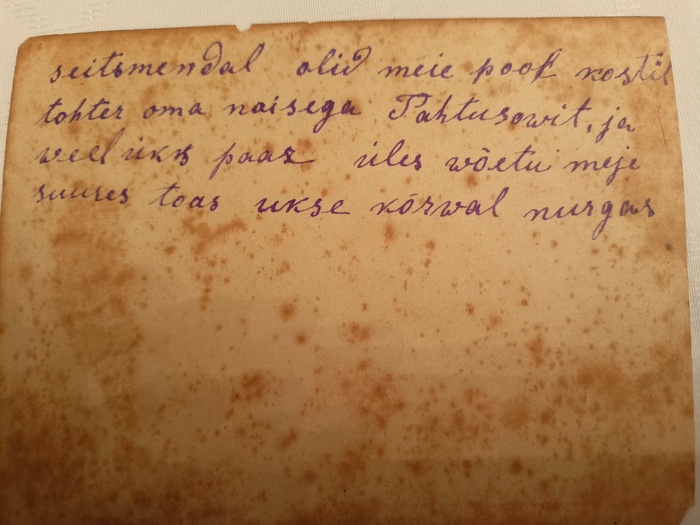 seitsmendal olid meie pool kostil
tohter oma naisega Pahtusowit, ja
weel üks paar üles wõetu meje
suures toas ukse kõrwal nurgas